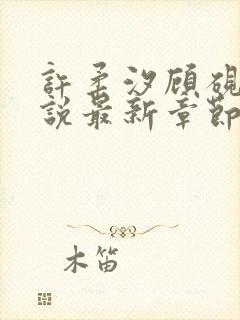 許柔汐顧硯
說最新章節
木笛